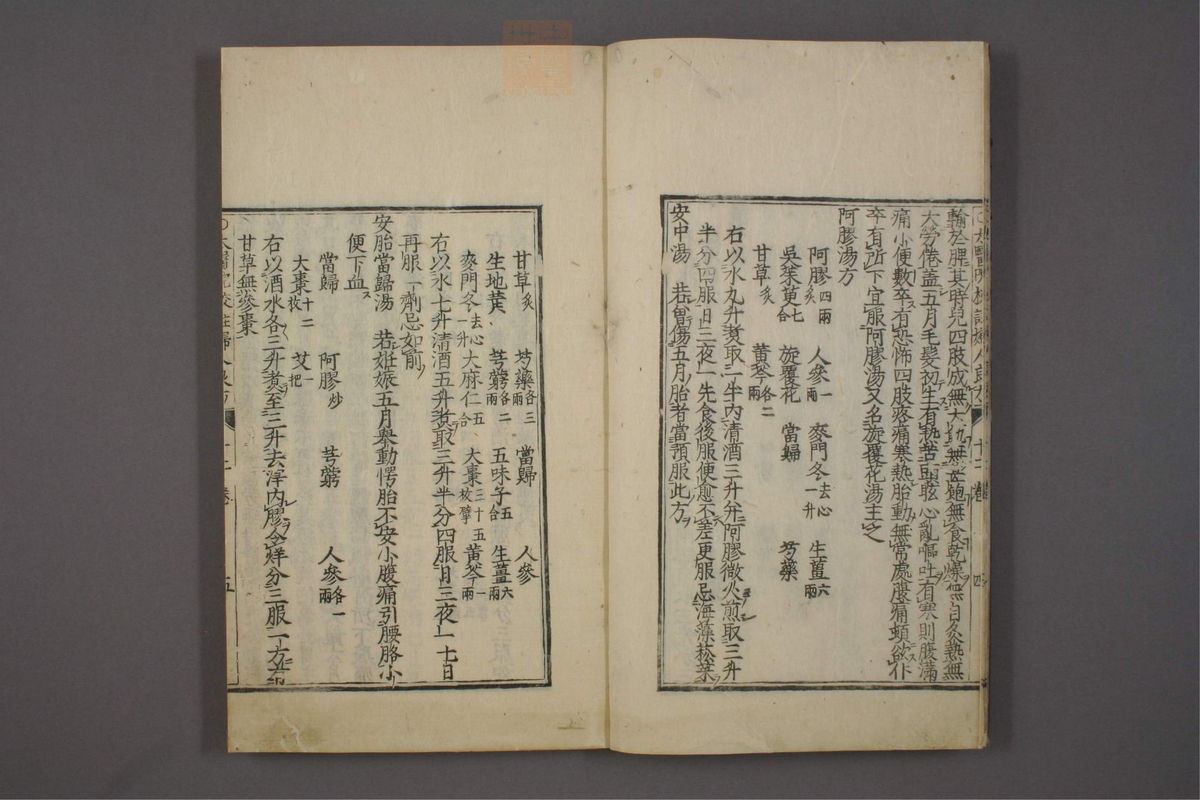 輸於脾其時兒四肢成無大飢無甚飽無食乾燥無自灸熱無
大勞倦蓋五月毛髮初生有熱苦頭眩心亂嘔吐有寒則腹滿
痛小便數卒有恐怖四肢疼痛寒熱胎動無常處腹痛頓欲仆
卒有所下宜服阿膠湯又名旋覆花湯主之
阿膠湯方
阿膠炙四兩 人參一兩 麥門冬去心一升 生薑六兩
吳茱萸七合 旋覆花 當歸 芍藥
甘草炙 黃芩各二兩
右以水九升煑取一半內清酒三升并阿膠微火煎取三升
半分四服日三夜一先食後服便愈不差更服忌海藻菘菜
安中湯 若曾傷五月胎者當預服此方
甘草炙 芍藥各三兩 當歸 人參
生地黃 芎藭各二兩 五味子五合 生薑六兩
麥門冬去心一升 大麻仁五合 大棗三十五枚擘 黃芩一兩
右以水七升清酒五升煑取三升半分四服日三夜一七日
再服一劑忌如前
安胎當歸湯 若姙娠五月舉動愕胎不安小腹痛引腰胳小
便下血
當歸 阿膠炒 芎藭 人參各一兩
大棗十二枚 艾一把
右以酒水各三升煑至三升去滓內膠令烊分三服一方有
甘草無參棗